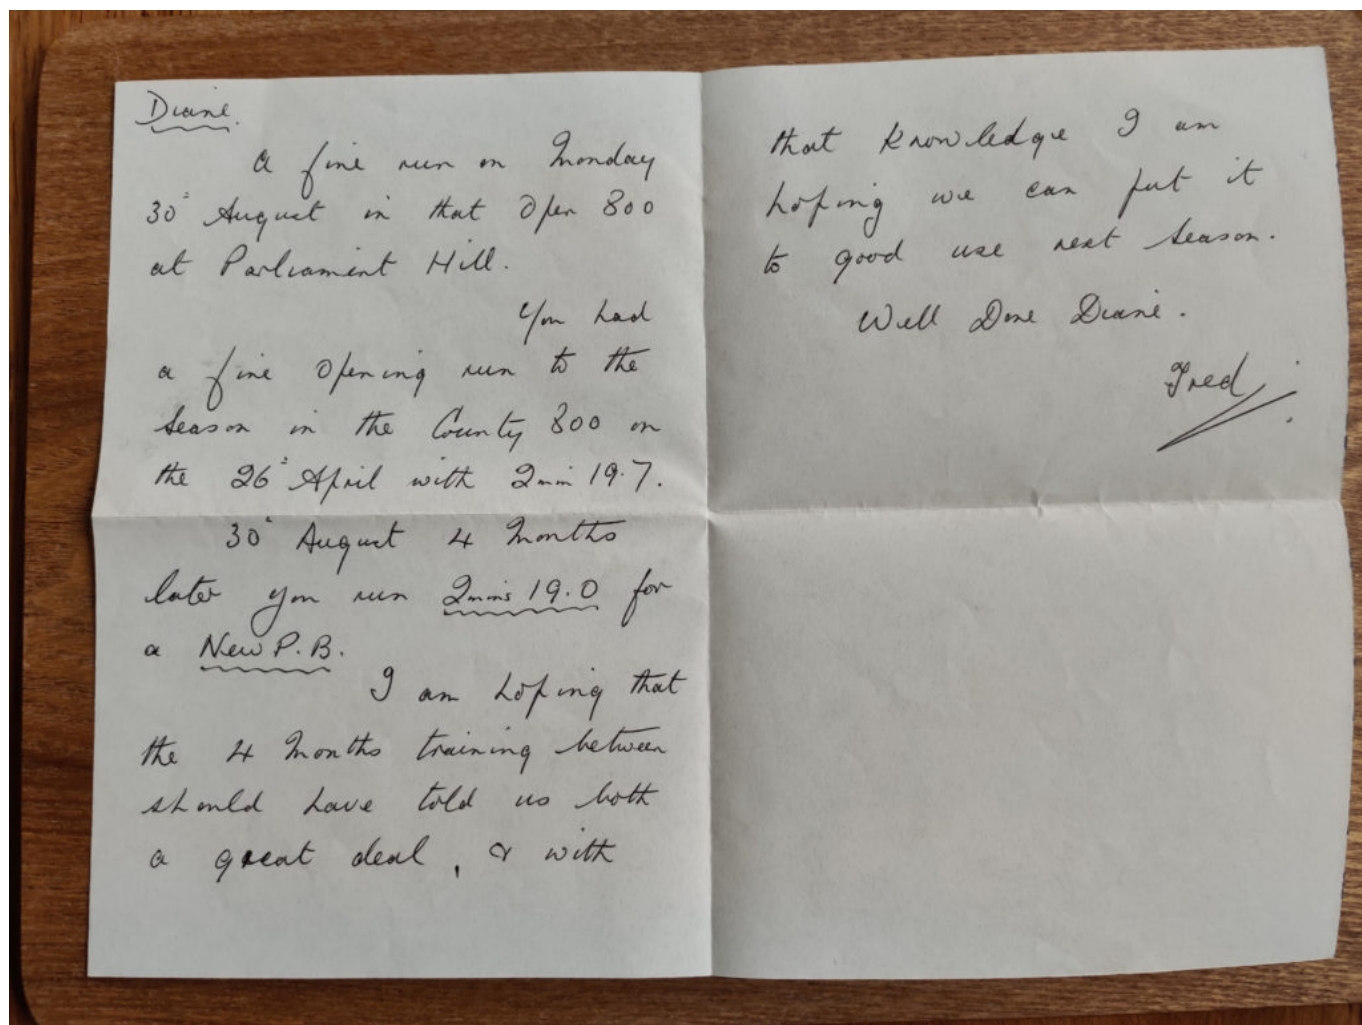 Diane.
A fine run on Monday
30th August in that Open 800
at Parliament Hill.
You had
a fine opening run to the
season in the County 800 on
the 26th April with 2min 19.7.
30th August 4 Months
later you run 2mins 19.0 for
a New P.B.
I am hoping that
the 4 Months training between
should have told us both
a great deal, & with
that knowledge I am
hoping we can put it
to good use next season.
Well Done Diane.
Fred